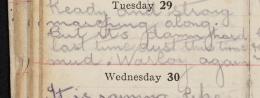 Tuesday 29
Ready and strong
marching along.
But it's damn hard
last time just this time
mud. Warloy again
Wednesday 30
It is